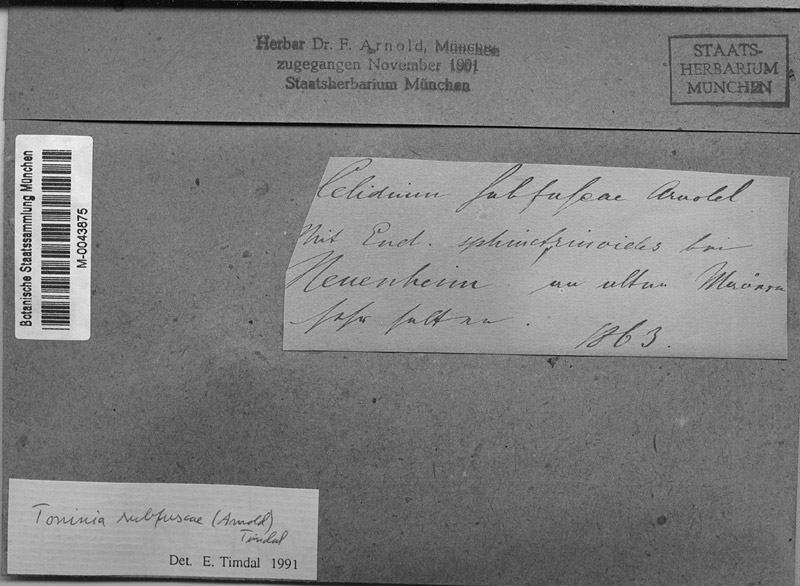 Herbar Dr. F. Arnold, München
zugegangen November 1901
Staatsherbarium München
STAATS-
HERBARIUM
MÜNCHEN
Botanische Staatssammlung München
M-0043875
Celidium subfuscae Arnold
Mit End. sphinctrinoides bei
Heuenheim an alten Mauern
sehr selten.
1863.
Toninia subfuscae (Arnold)
Timdal
Det. E. Timdal 1991